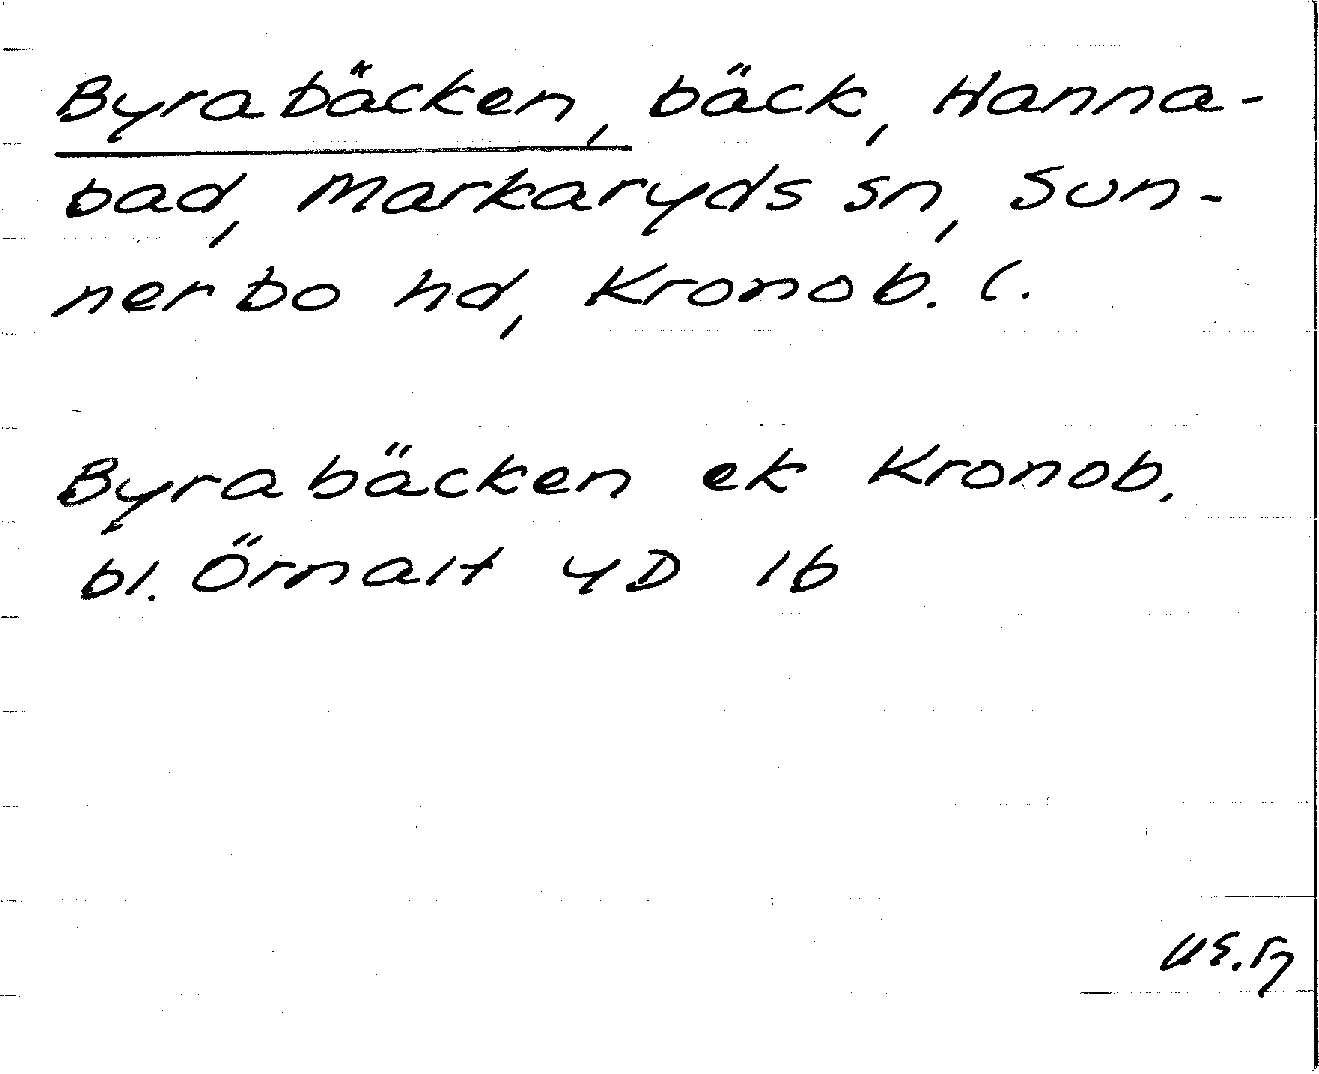 Byrabäcken, bäck, Hanna-
bad, Markaryds sn, Sun-
nerbo hd, Kronob. l.
Byrabäcken ek Kronob.
bl. Örnalt 4D 1b